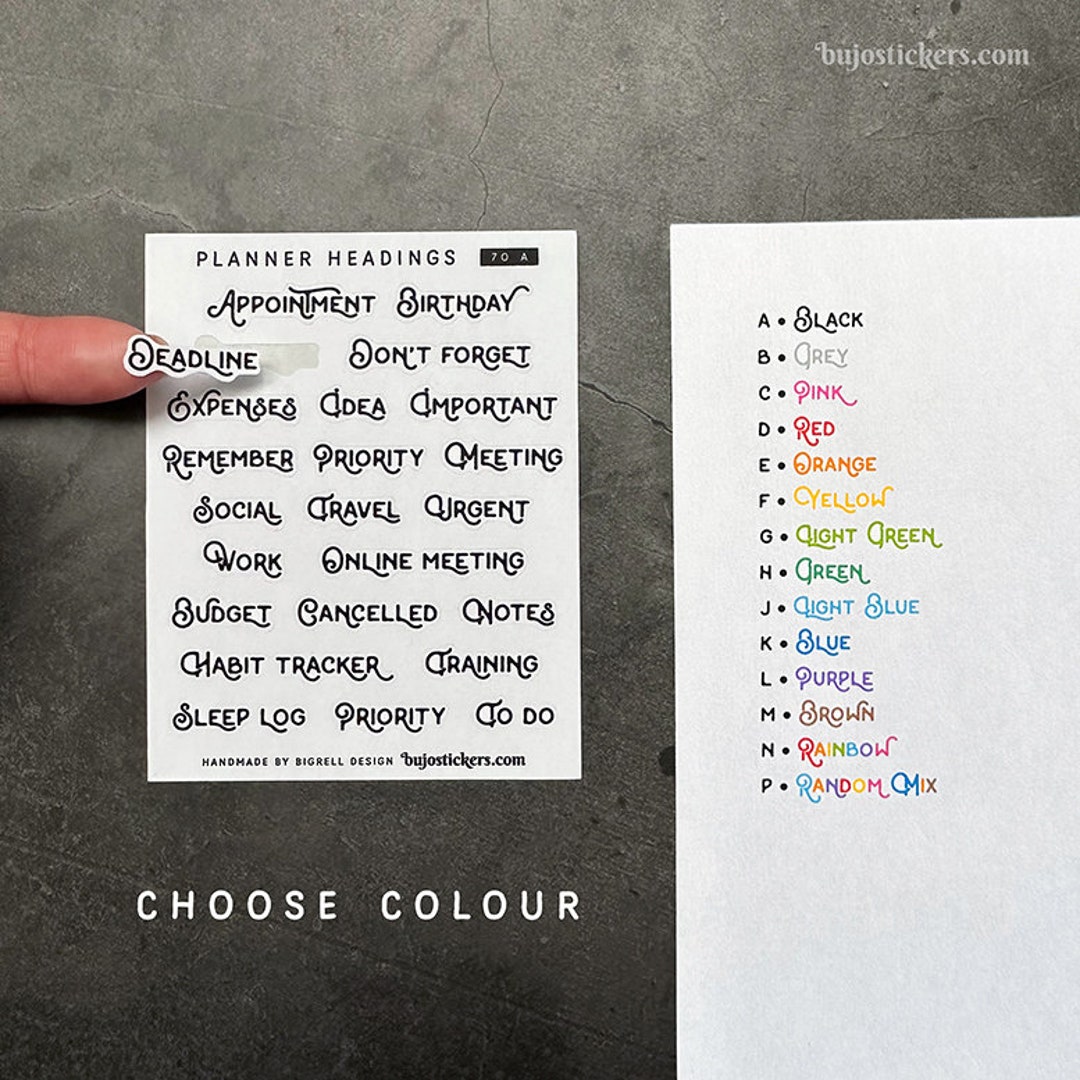 bujostickers.com
PLANNER HEADINGS 70 A
APPOINTMENT BIRTHDAY
DEADLINE DON'T FORGET
EXPENSES IDEA IMPORTANT
REMEMBER PRIORITY MEETING
SOCIAL TRAVEL URGENT
WORK ONLINE MEETING
BUDGET CANCELLED NOTES
HABIT TRACKER TRAINING
SLEEP LOG PRIORITY TO DO
HANDMADE BY BIGRELL DESIGN bujostickers.com
A • BLACK
B • GREY
C • PINK
D • RED
E • ORANGE
F • YELLOW
G • LIGHT GREEN
H • GREEN
J • LIGHT BLUE
K • BLUE
L • PURPLE
M • BROWN
N • RAINBOW
P • RANDOM MIX
CHOOSE COLOUR